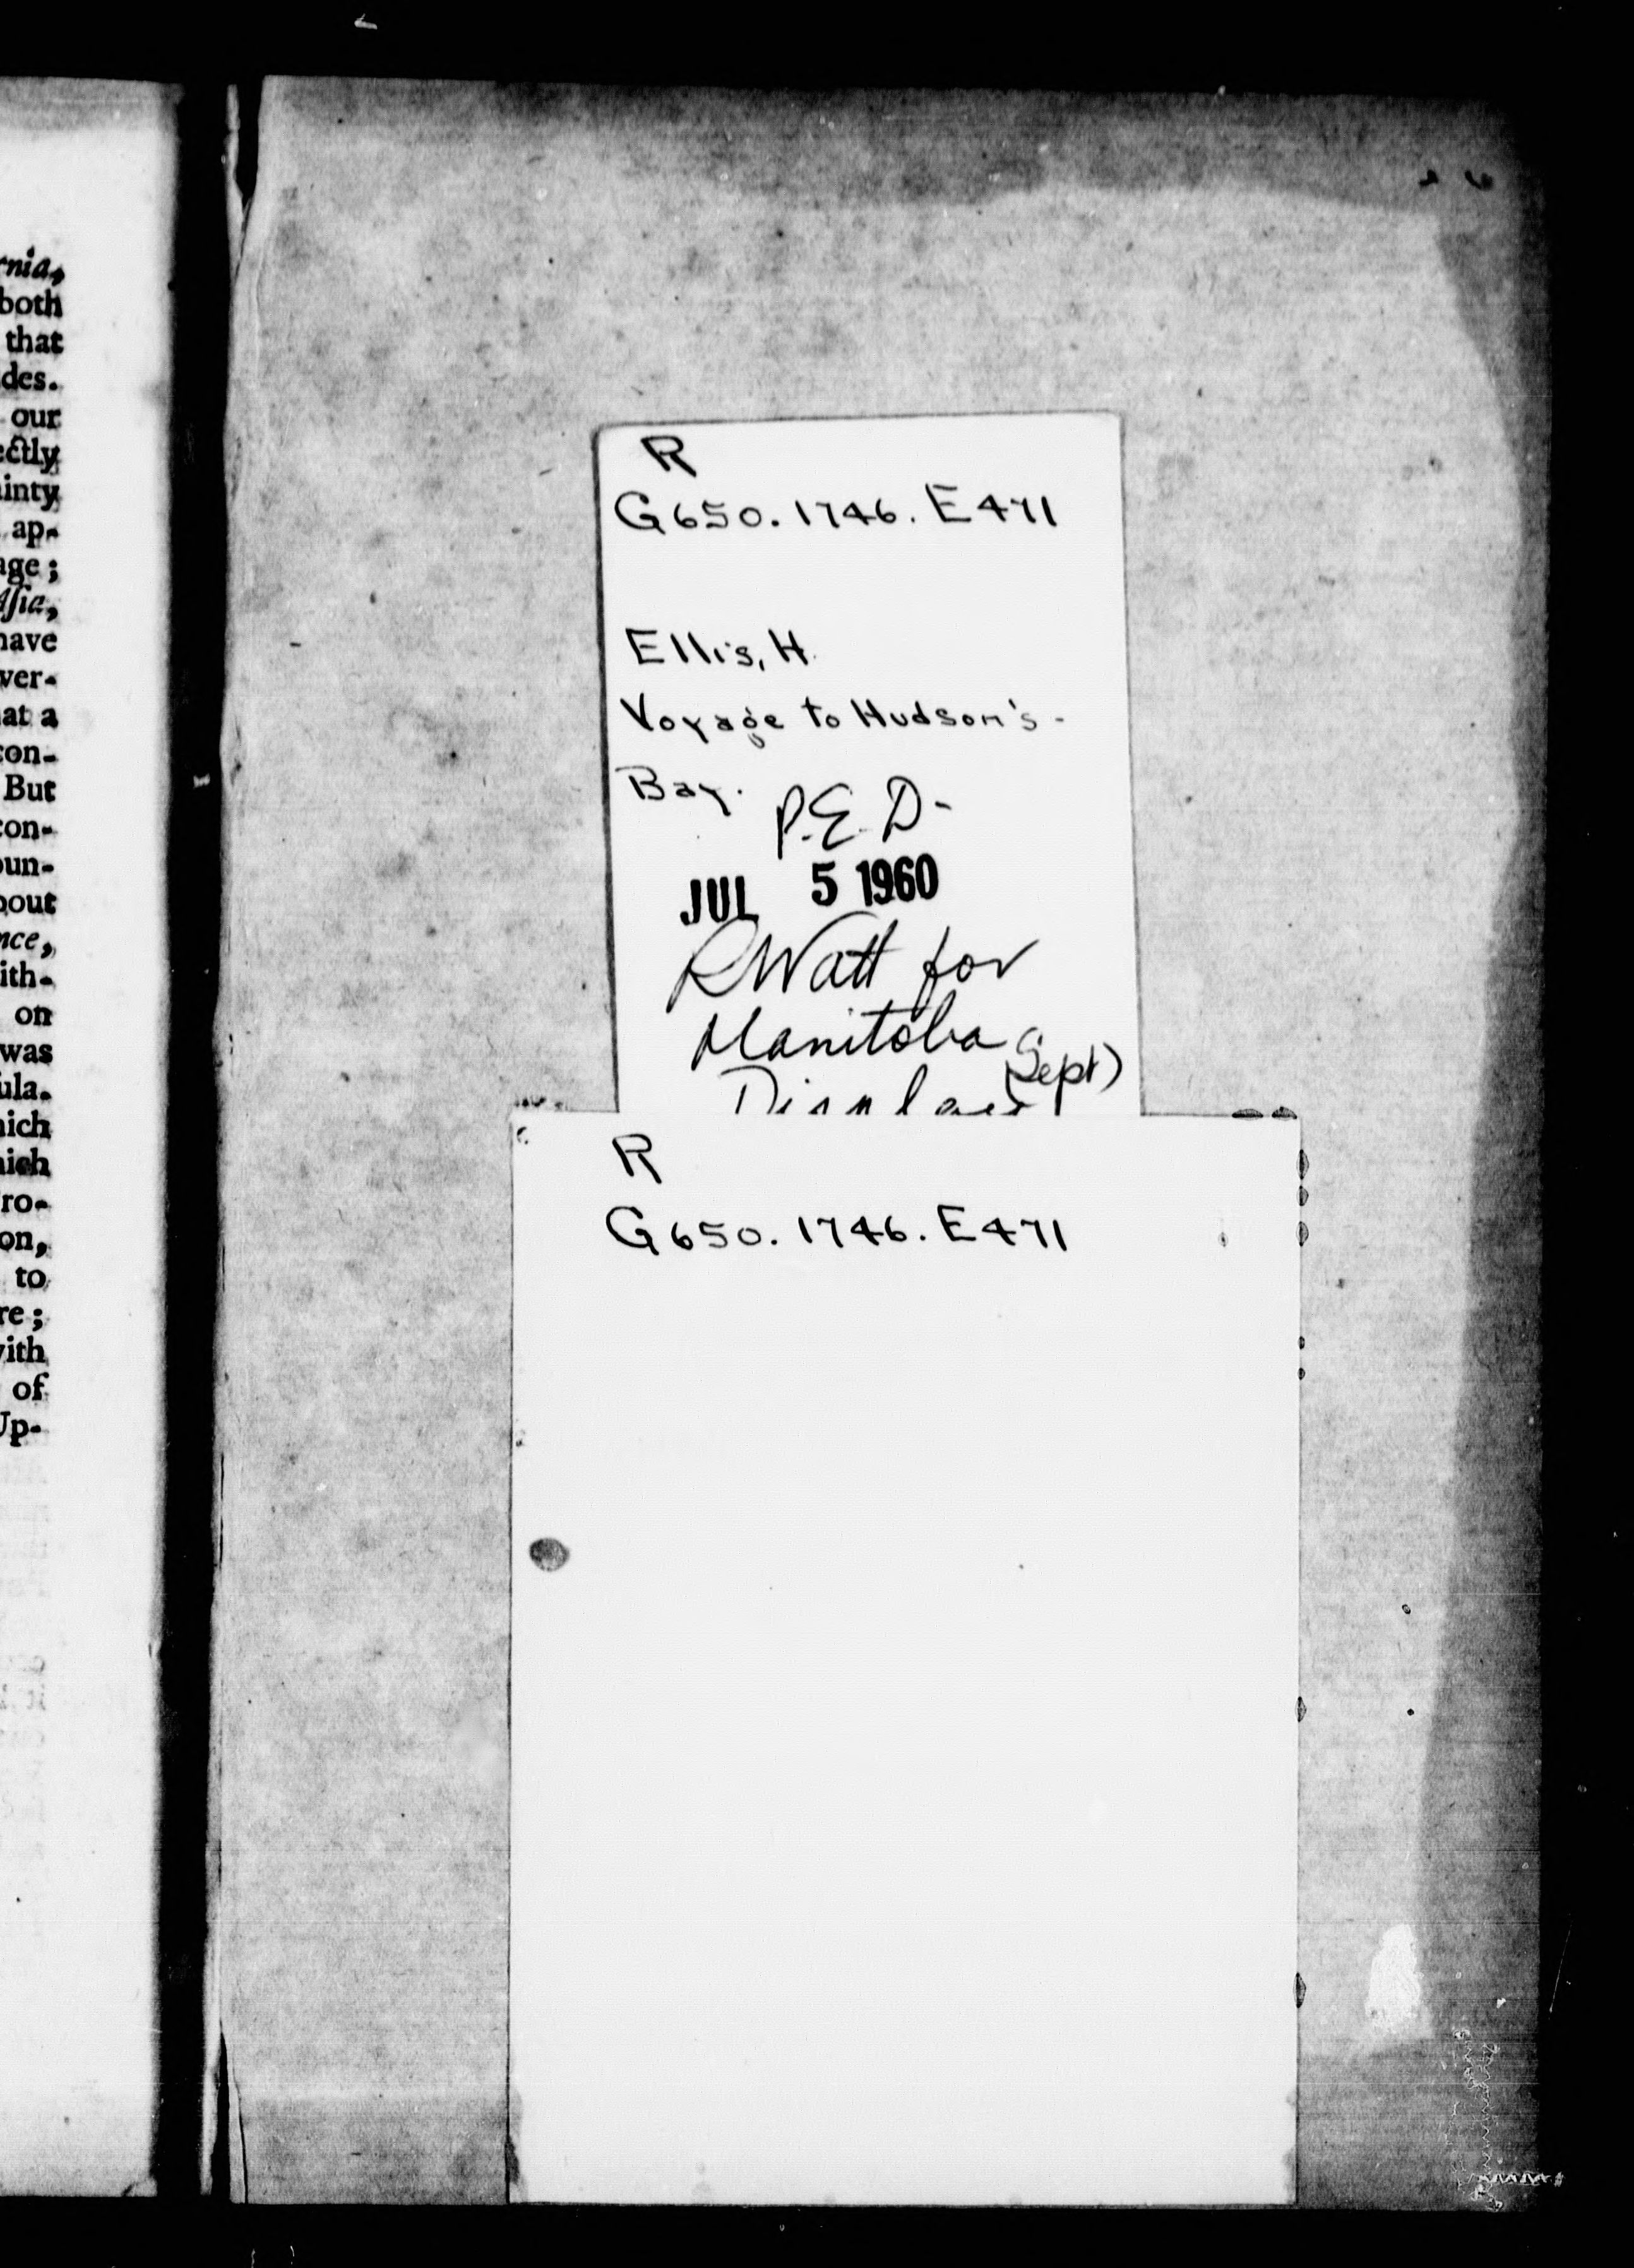 rnia,
both
that
des.
our
ectly
inty
ap-
age;
Asia,
have
ver-
at a
con-
But
con-
oun-
bout
nce,
ith-
on
was
ula.
hich
hich
ro-
on,
to
re;
with
of
Up-
R
G650.1746.E471
Ellis, H.
Voyage to Hudson's-
Bay.
P.E.D-
JUL 5 1960
RWatt for
Manitoba
Sept)
Display
R
G650.1746.E471